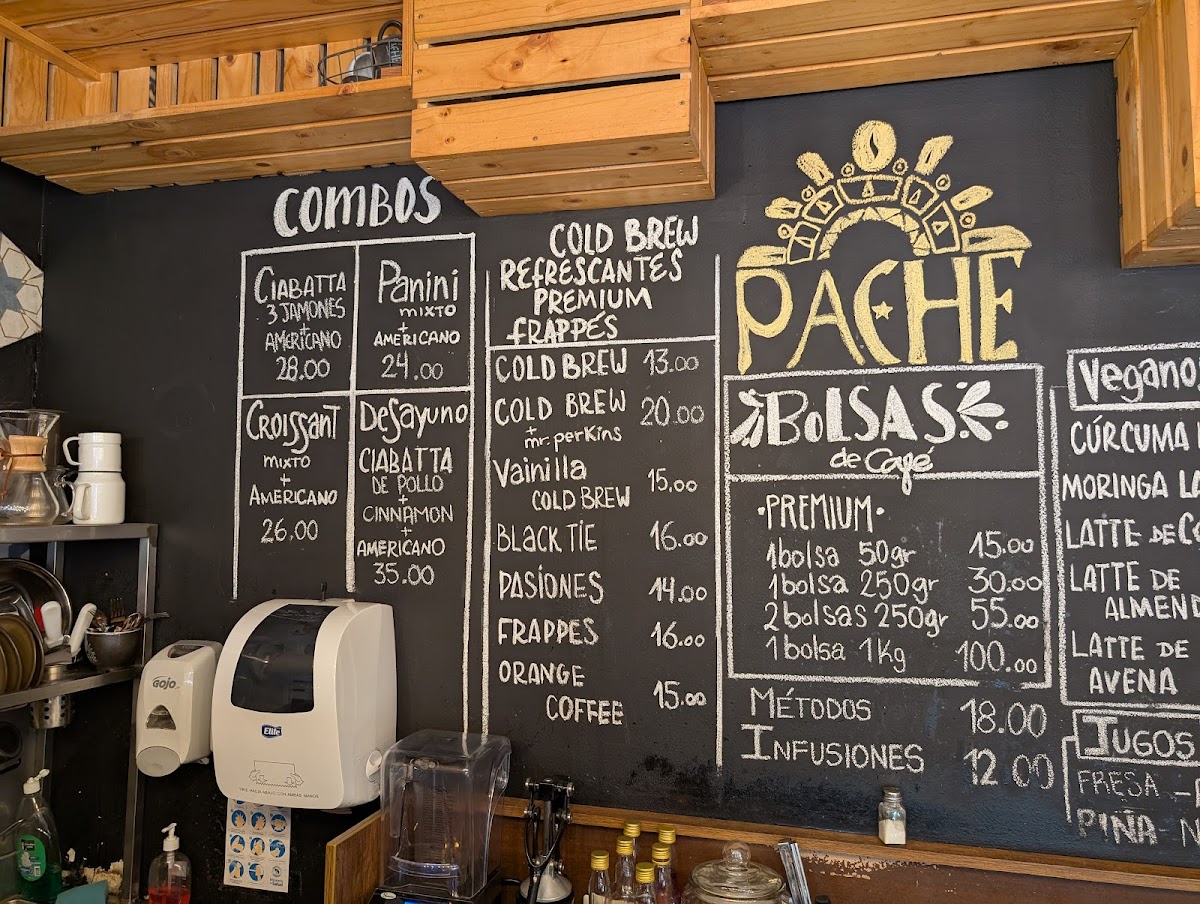 COMBOS
CIABATTA
3 JAMONES
+
AMERICANO
28.00
Panini
mixto
+
AMERICANO
24.00
CROISSANT
MIXTO
+
AMERICANO
26.00
Desayuno
CIABATTA
DE POLLO
+
CINNAMON
+
AMERICANO
35.00
COLD BREW
REFRESCANTES
PREMIUM
FRAPPÉS
COLD BREW 13.00
COLD BREW 20.00
+
mr. perkins
Vainilla
COLD BREW 15.00
BLACK TIE 16.00
PASIONES 14.00
FRAPPES 16.00
ORANGE
COFFEE 15.00
PACHE
BOLSAS
de Café
·PREMIUM·
1bolsa 50gr 15.00
1bolsa 250gr 30.00
2bolsas 250gr 55.00
1 bolsa 1Kg 100.00
MÉTODOS 18.00
INFUSIONES 12.00
Vegano
CÚRCUMA
MORINGA LA
LATTE DE CO
LATTE DE
ALMEND
LATTE DE
AVENA
JUGOS
FRESA -
PIÑA - N
GOJO
Elite